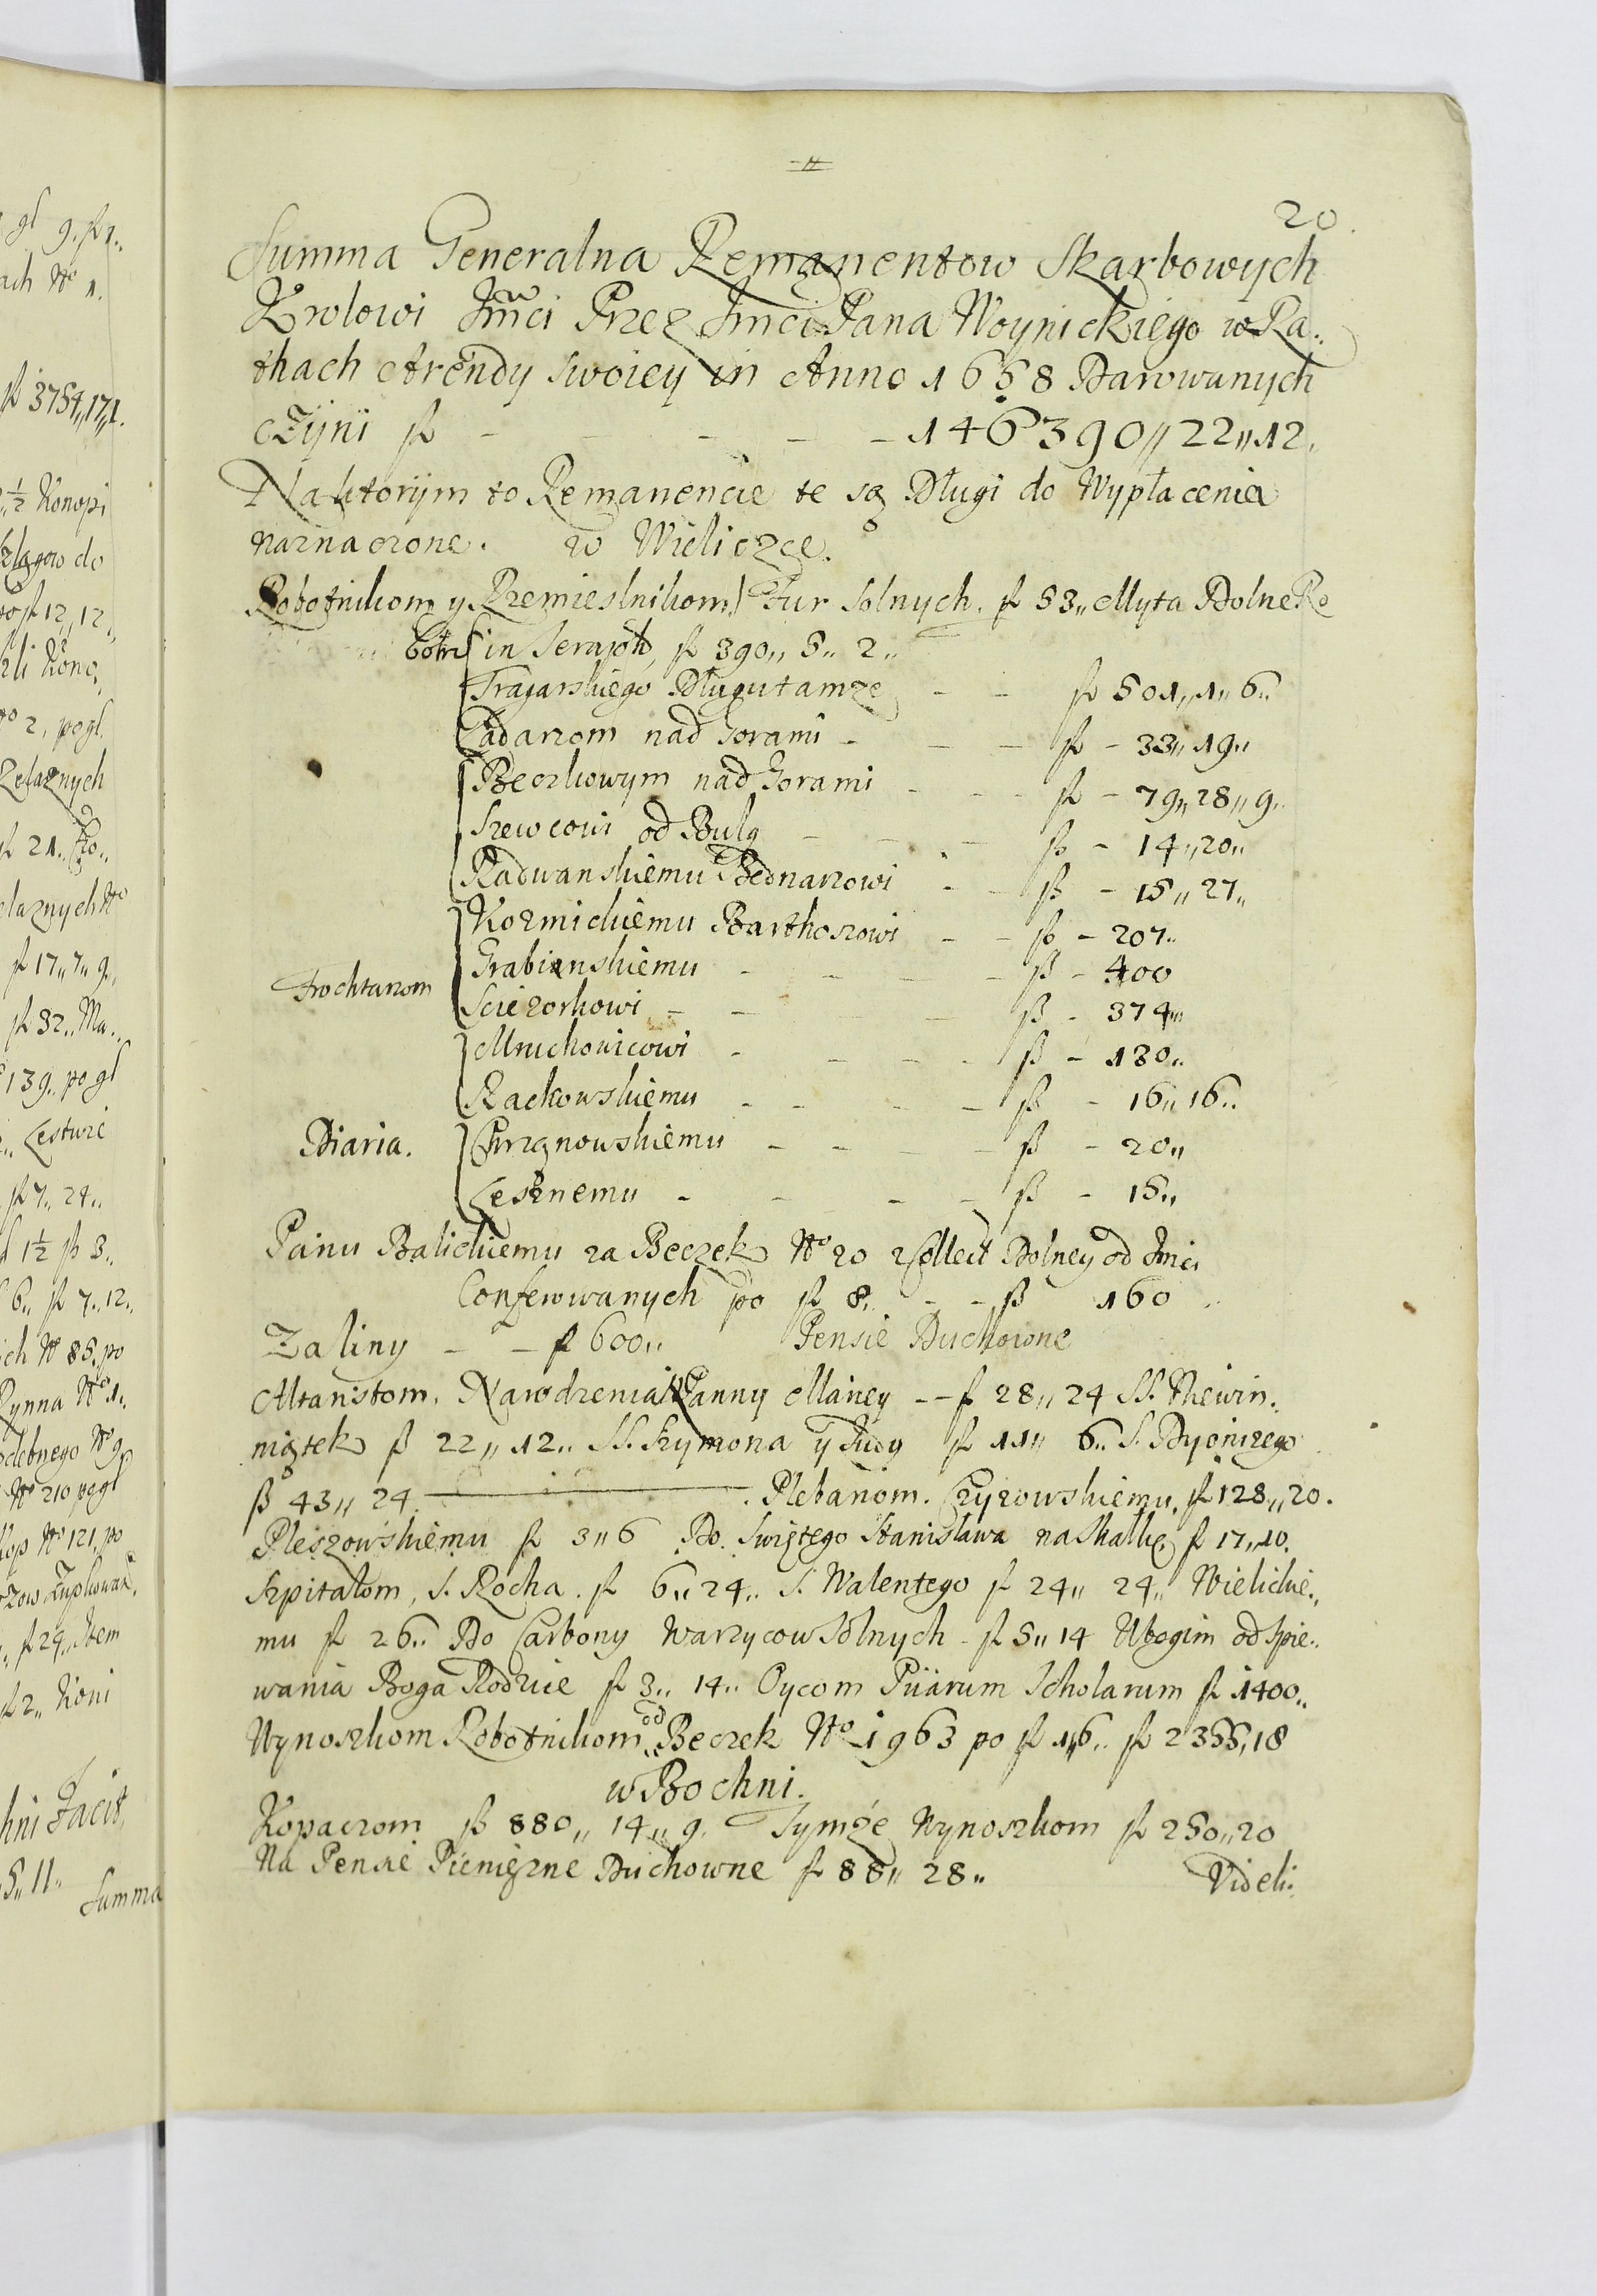 gl 9. fl 1„
ach No 1.
fl 3754„17„1.
½ Konopi
do
fl 12, 12„
2, po gl.
Zelaznych
fl 21.
elaznych No
fl 17„7„9„
fl 32„ Ma.
139. po gl
Lestwic
fl 7„ 24„
1½ fl 3„
6„ fl 7„12„
ch No 85. po
Rynna No 1.
No 9
No 210 po gl
kop No 121. po
fl 29. Item
fl 2„ Koni
hni Facit
5„11„
Summa
20.
Summa Generalna Remanentow Skarbowych
Krolowi Jmci Przez Jmci Pana Woynickiego w Ra„
thach Arendy Swoiey in Anno 1658 Darowanych
cZijni fl - - - - - 146390„22„12.
Na ktorijm to Remanencie te są Długi do Wypłacenia
naznaczone. w Wieliczce.
Robotnikom y Rzemieslnikom Fur Solnych. fl 53„ Myta Dolne Ro
botn in Seraph, fl 390„ 5„ 2„
Tragarskiego Długu tamze - - fl 501„1„6„
Ładarzom nad Gorami - - - fl - 33„19„
Beczkowym nad Gorami - - - fl - 79„28„9„
Szewcowi od Bulg - - - fl - 14„20„
Radwanskiemu Bednarzowi - - fl - 15„27„
Kozmickiemu Barthoszowi - - fl - 207„
Frochtarzom Grabianskiemu - - - - fl - 400
Sciezorkowi - - - - fl - 374„
Mruchowicowi - - - - fl - 130„
Rackowskiemu - - - - fl - 16„16„
Diaria. Chrzanowskiemu - - - - fl - 20„
Lesznemu - - - - fl - 15„
Panu Balickiemu za Beczek No 20 z Collect Dolney od Jmci
Conferowanych po fl 8„ - - fl 160„
Za liny - - fl 600„ Pensie Duchowne
Altaristom. Narodzenia Panny Mariey -- fl 28„24 SS. Niewin„
niątek fl 22„12„ SS. Szymona y Judy fl 11„6„ S. Dyonizego
fl 43„24. Plebanom. Czyzowskiemu. fl 128„20.
Pleszowskiemu fl 3„6 Do. Swiętego Stanisława na Skałkę. fl 17„10.
Szpitalom, S. Rocha. fl 6„24„ S. Walentego fl 24„24„ Wielickie„
mu fl 26„ Do Carbony Warzycow Solnych - fl 5„14 Ubogim od Spie„
wania Boga Rodzice fl 3„14„ Oycom Piiarum Scholarum fl 1400„
Wynoszkom Robotnikom od Beczek No 1963 po fl 1„6„ fl 2355„18
w Bochni.
Kopaczom fl 880„14„9. Tymże Wynoszkom fl 250„20
Na Pensie Pieniężne Duchowne fl 88„28„ Videli: